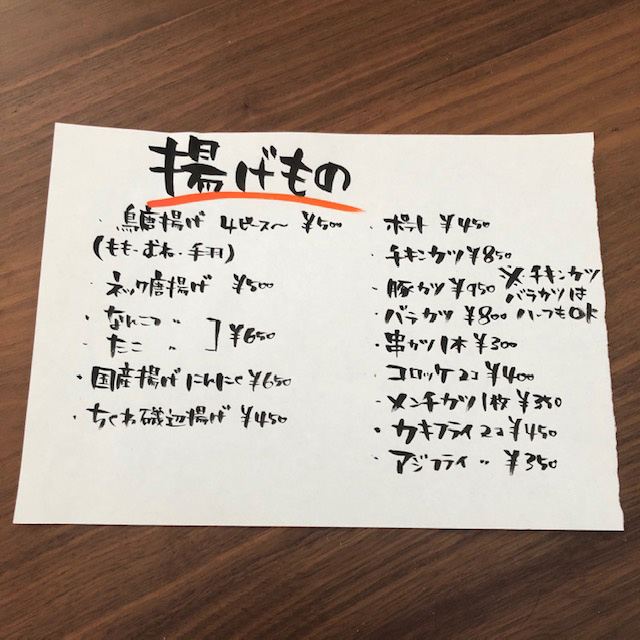 揚げもの
・鳥唐揚げ 4ピース〜 ¥500
(もも・むね・手羽)
・ネック唐揚げ ¥500
・なんこつ 〃
・たこ 〃 ] ¥650
・国産揚げにんにく ¥650
・ちくわ磯辺揚げ ¥450
・ポテト ¥450
・チキンカツ ¥850
・豚カツ ¥950
・バラカツ ¥800
※チキンカツ
バラカツは
ハーフもOK
・串カツ1本 ¥300
・コロッケ2コ ¥400
・メンチカツ1枚 ¥350
・カキフライ2コ ¥450
・アジフライ 〃 ¥350